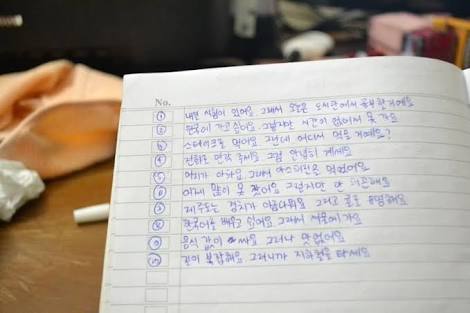 No.
① 내일 시험이 있어요. 그래서 오늘은 도서관에서 공부할거예요
② 한국에 가고 싶어요. 그렇지만 시간이 없어서 못 가요
③ 스테이크를 먹어요 그런데 어디서 먹을 거예요?
④ 전화를 주세요 그럼 안녕히 계세요
⑤ 머리가 아파요 그래서 아스피린을 먹었어요
⑥ 어제 많이 못 잤어요 그렇지만 안 피곤해요
⑦ 제주도는 경치가 아름다워요 그리고 귤로 유명해요
⑧ 한국어를 배우고 있어요 그래서 서울에 가요
⑨ 음식 값이 싸요 그러나 맛없어요
⑩ 길이 복잡해요 그러니까 지하철을 타세요